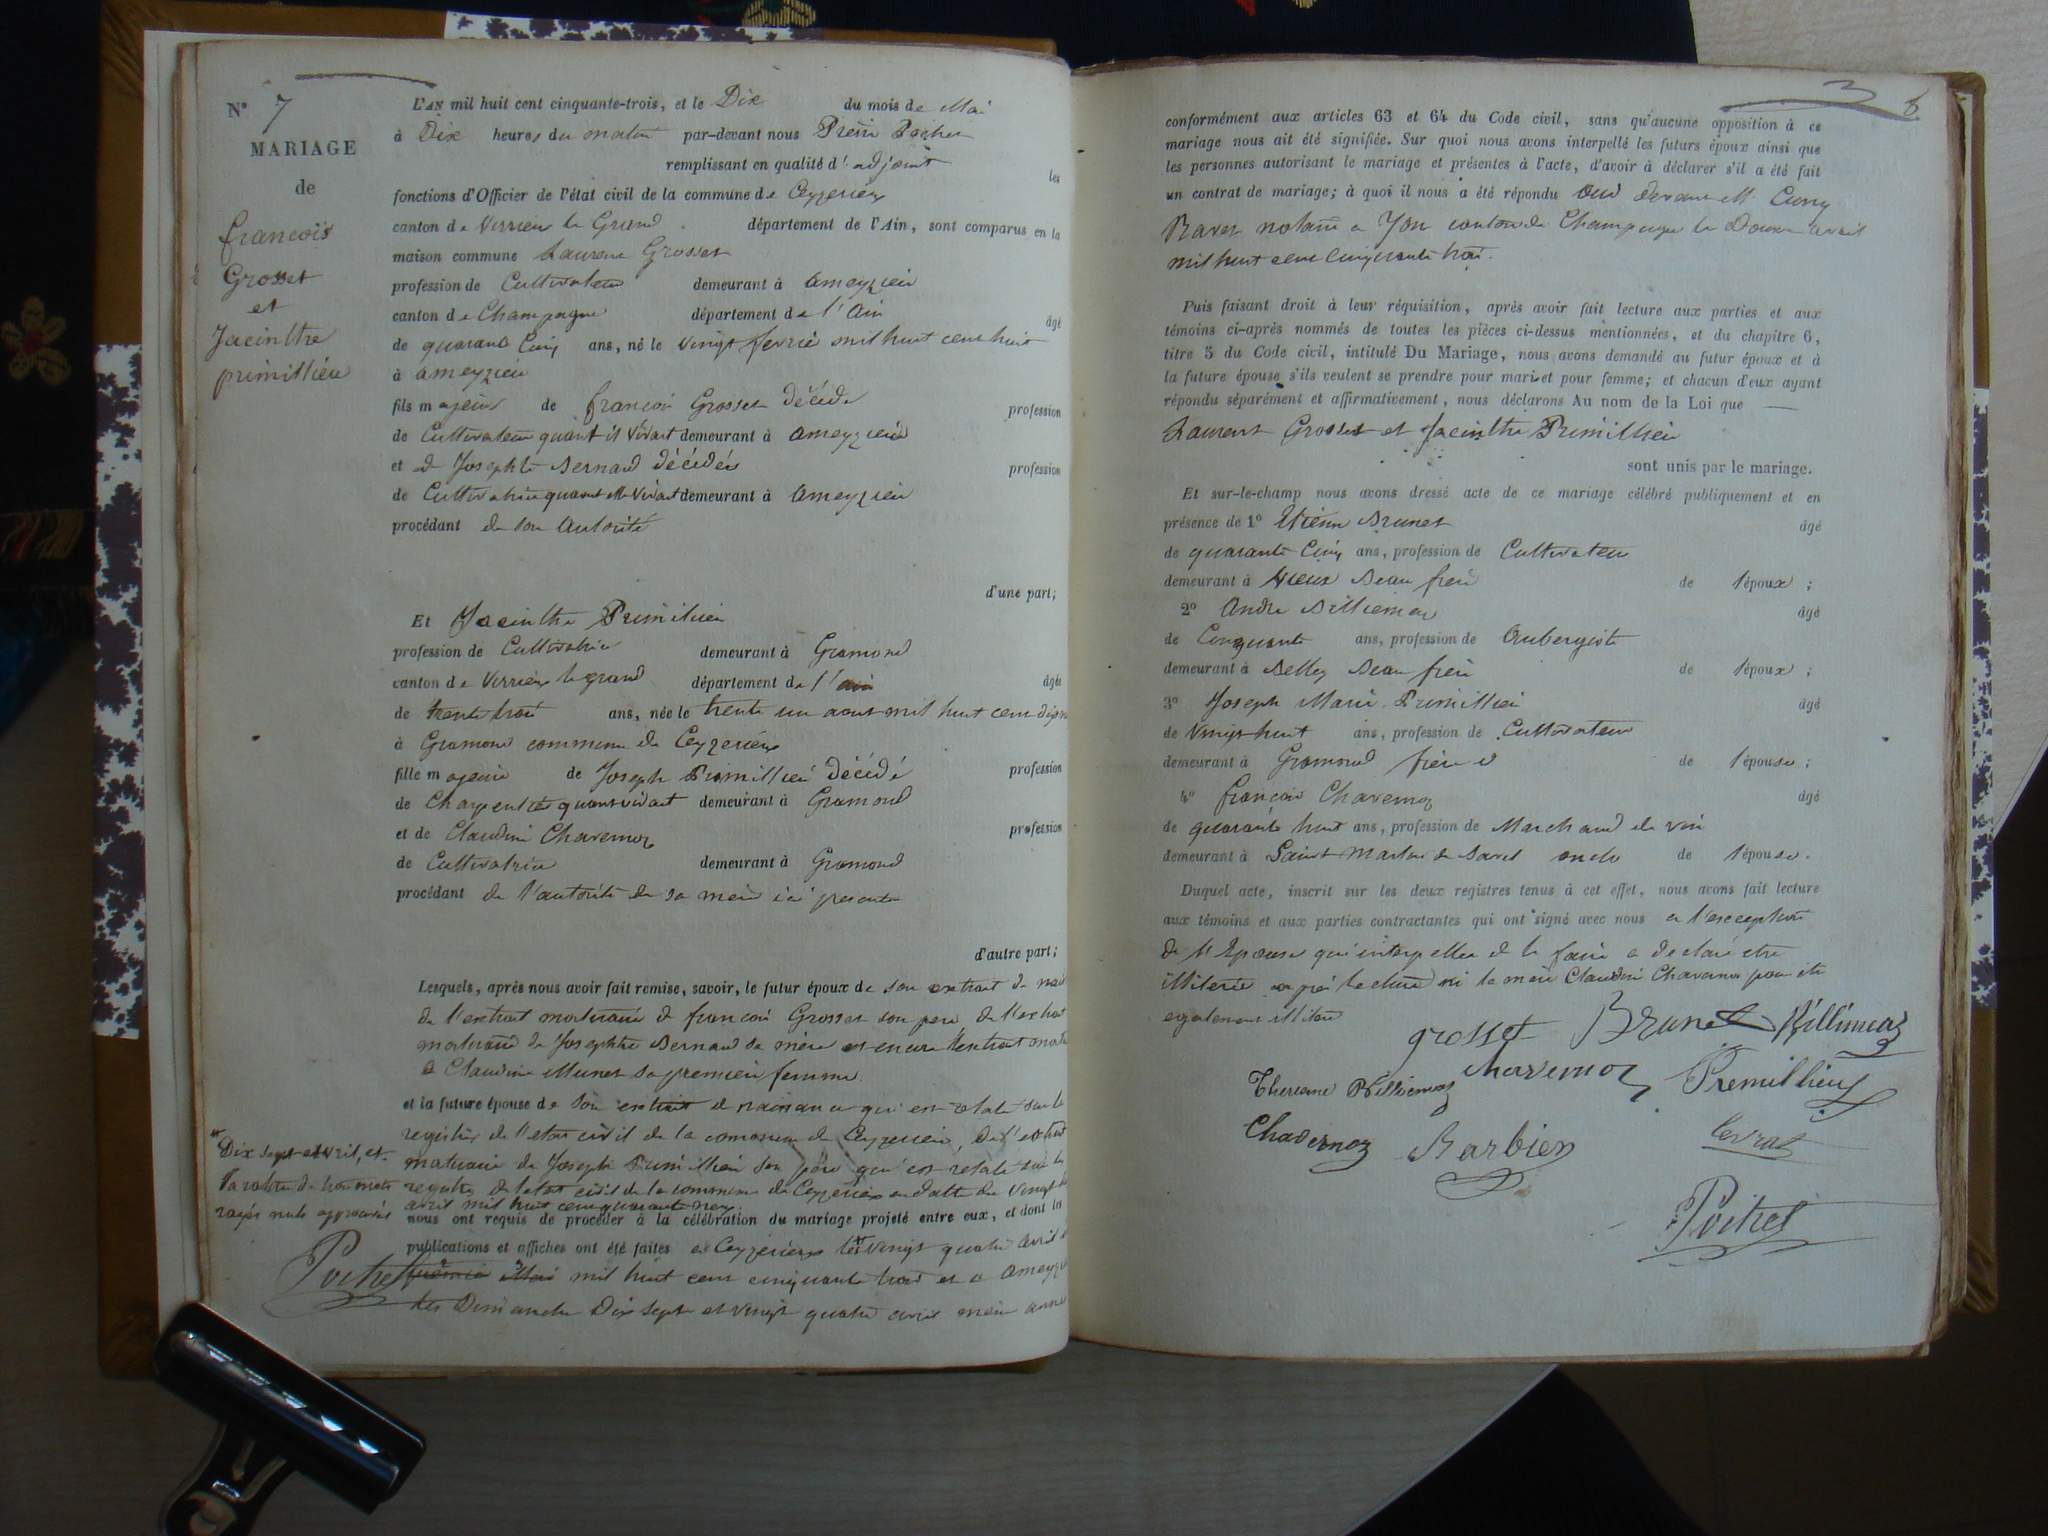 N° 7
MARIAGE
de
francois
Grosset
et
Jacinthe
primillieu
L'AN mil huit cent cinquante-trois, et le Dix du mois de Mai
à Dix heures du matin par-devant nous
remplissant en qualité d'adjoint les
fonctions d'Officier de l'état civil de la commune de Ceyzerieu
canton de Virrieu le Grand département de l'Ain, sont comparus en la
maison commune Laurent Grosset
profession de Cultivateur demeurant à ameyzieu
canton de Champagne département de l'Ain âgé
de quarante Cinq ans, né le vingt fevrié mil huit cent huit
à ameyzieu
fils majeur de françois Grosset décédé profession
de Cultivateur quant il vivait demeurant à ameyzieu
et de Josephte Bernard décédée profession
de Cultivatrice quant elle vivait demeurant à ameyzieu
procédant de son autorité
d'une part;
Et Jacinthe Primillieu
profession de Cultivatrice demeurant à Gramond
canton de Virrieu le grand département de l'ain âgée
de trente trois ans, née le trente un aout mil huit cent
à Gramond commune de Ceyzerieu
fille majeure de Joseph Primillieu décédé profession
de Charpentier quant vivait demeurant à Gramond
et de Claudine Chavernoz profession
de Cultivatrice demeurant à Gramond
procédant de l'autorité de sa mère ici presente
d'autre part;
Lesquels, après nous avoir fait remise, savoir, le futur époux de son extrait de
de l'extrait mortuaire de françois Grosset son pere de l'extrait
mortuaire de Josephte Bernard sa mère et encore l'extrait
de Claudine Munet sa premiere femme.
et la future épouse de son extrait de naissance qui est relaté sur le
registre de l'etat civil de la commune de Ceyzerieu, de l'extrait
mortuaire de Joseph Primillieu son père qui est relaté sur le
registre de l'etat civil de la commune de Ceyzerieu en date du vingt
avril mil huit cent quarante
nous ont requis de procéder à la célébration du mariage projeté entre eux, et dont les
publications et affiches ont été faites a Ceyzerieu les vingt quatre avril
mai mil huit cent cinquante trois et a ameyzieu
les Dimanche Dix sept et vingt quatre avril meme année
Dix sept avril, et
la rature de trois mots
rayés nuls approuvés
Pochet
3
8
conformément aux articles 63 et 64 du Code civil, sans qu'aucune opposition à ce
mariage nous ait été signifiée. Sur quoi nous avons interpellé les futurs époux ainsi que
les personnes autorisant le mariage et présentes à l'acte, d'avoir à déclarer s'il a été fait
un contrat de mariage; à quoi il nous a été répondu oui devant M. Cuny
Ravet notaire a Yon canton de Champagne le Douze avril
mil huit cent cinquante trois.
Puis faisant droit à leur réquisition, après avoir fait lecture aux parties et aux
témoins ci-après nommés de toutes les pièces ci-dessus mentionnées, et du chapitre 6,
titre 5 du Code civil, intitulé Du Mariage, nous avons demandé au futur époux et à
la future épouse s'ils veulent se prendre pour mari et pour femme; et chacun d'eux ayant
répondu séparément et affirmativement, nous déclarons Au nom de la Loi que
Laurent Grosset et Jacinthe Primillieu
sont unis par le mariage.
Et sur-le-champ nous avons dressé acte de ce mariage célébré publiquement et en
présence de 1° Etienne Brunet âgé
de quarante Cinq ans, profession de Cultivateur
demeurant à Vieux Beau frere de l'époux;
2° André Billiemaz âgé
de Cinquante ans, profession de Aubergiste
demeurant à Belley Beau frère de l'époux;
3° Joseph Marie Primillieu âgé
de vingt huit ans, profession de Cultivateur
demeurant à Gramond frère de l'épouse;
4° françois Chavernoz âgé
de quarante huit ans, profession de Marchand de vin
demeurant à Saint Martin de Bavel oncle de l'épouse.
Duquel acte, inscrit sur les deux registres tenus à cet effet, nous avons fait lecture
aux témoins et aux parties contractantes qui ont signé avec nous a l'exception
de l'épouse qui interpellée de le faire a déclaré etre
illiterée après lecture ni la mère Claudine Chavernoz pour etre
egalement illiterée
grosset Brunet Billiemaz
Billiemaz chavernoz Premillieu
Chavernoz Barbier Levrat
Pochet